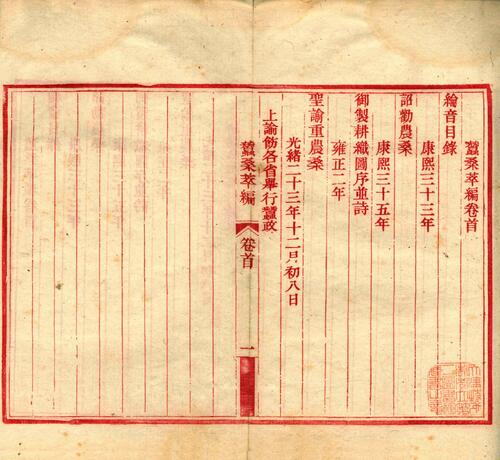 蠶桑萃編卷首
綸音目錄
康熙三十三年
詔勸農桑
康熙三十五年
御製耕織圖序並詩
雍正二年
聖諭重農桑
光緒二十三年十二月初八日
上諭飭各省舉行蠶政
蠶桑萃編
卷首
一